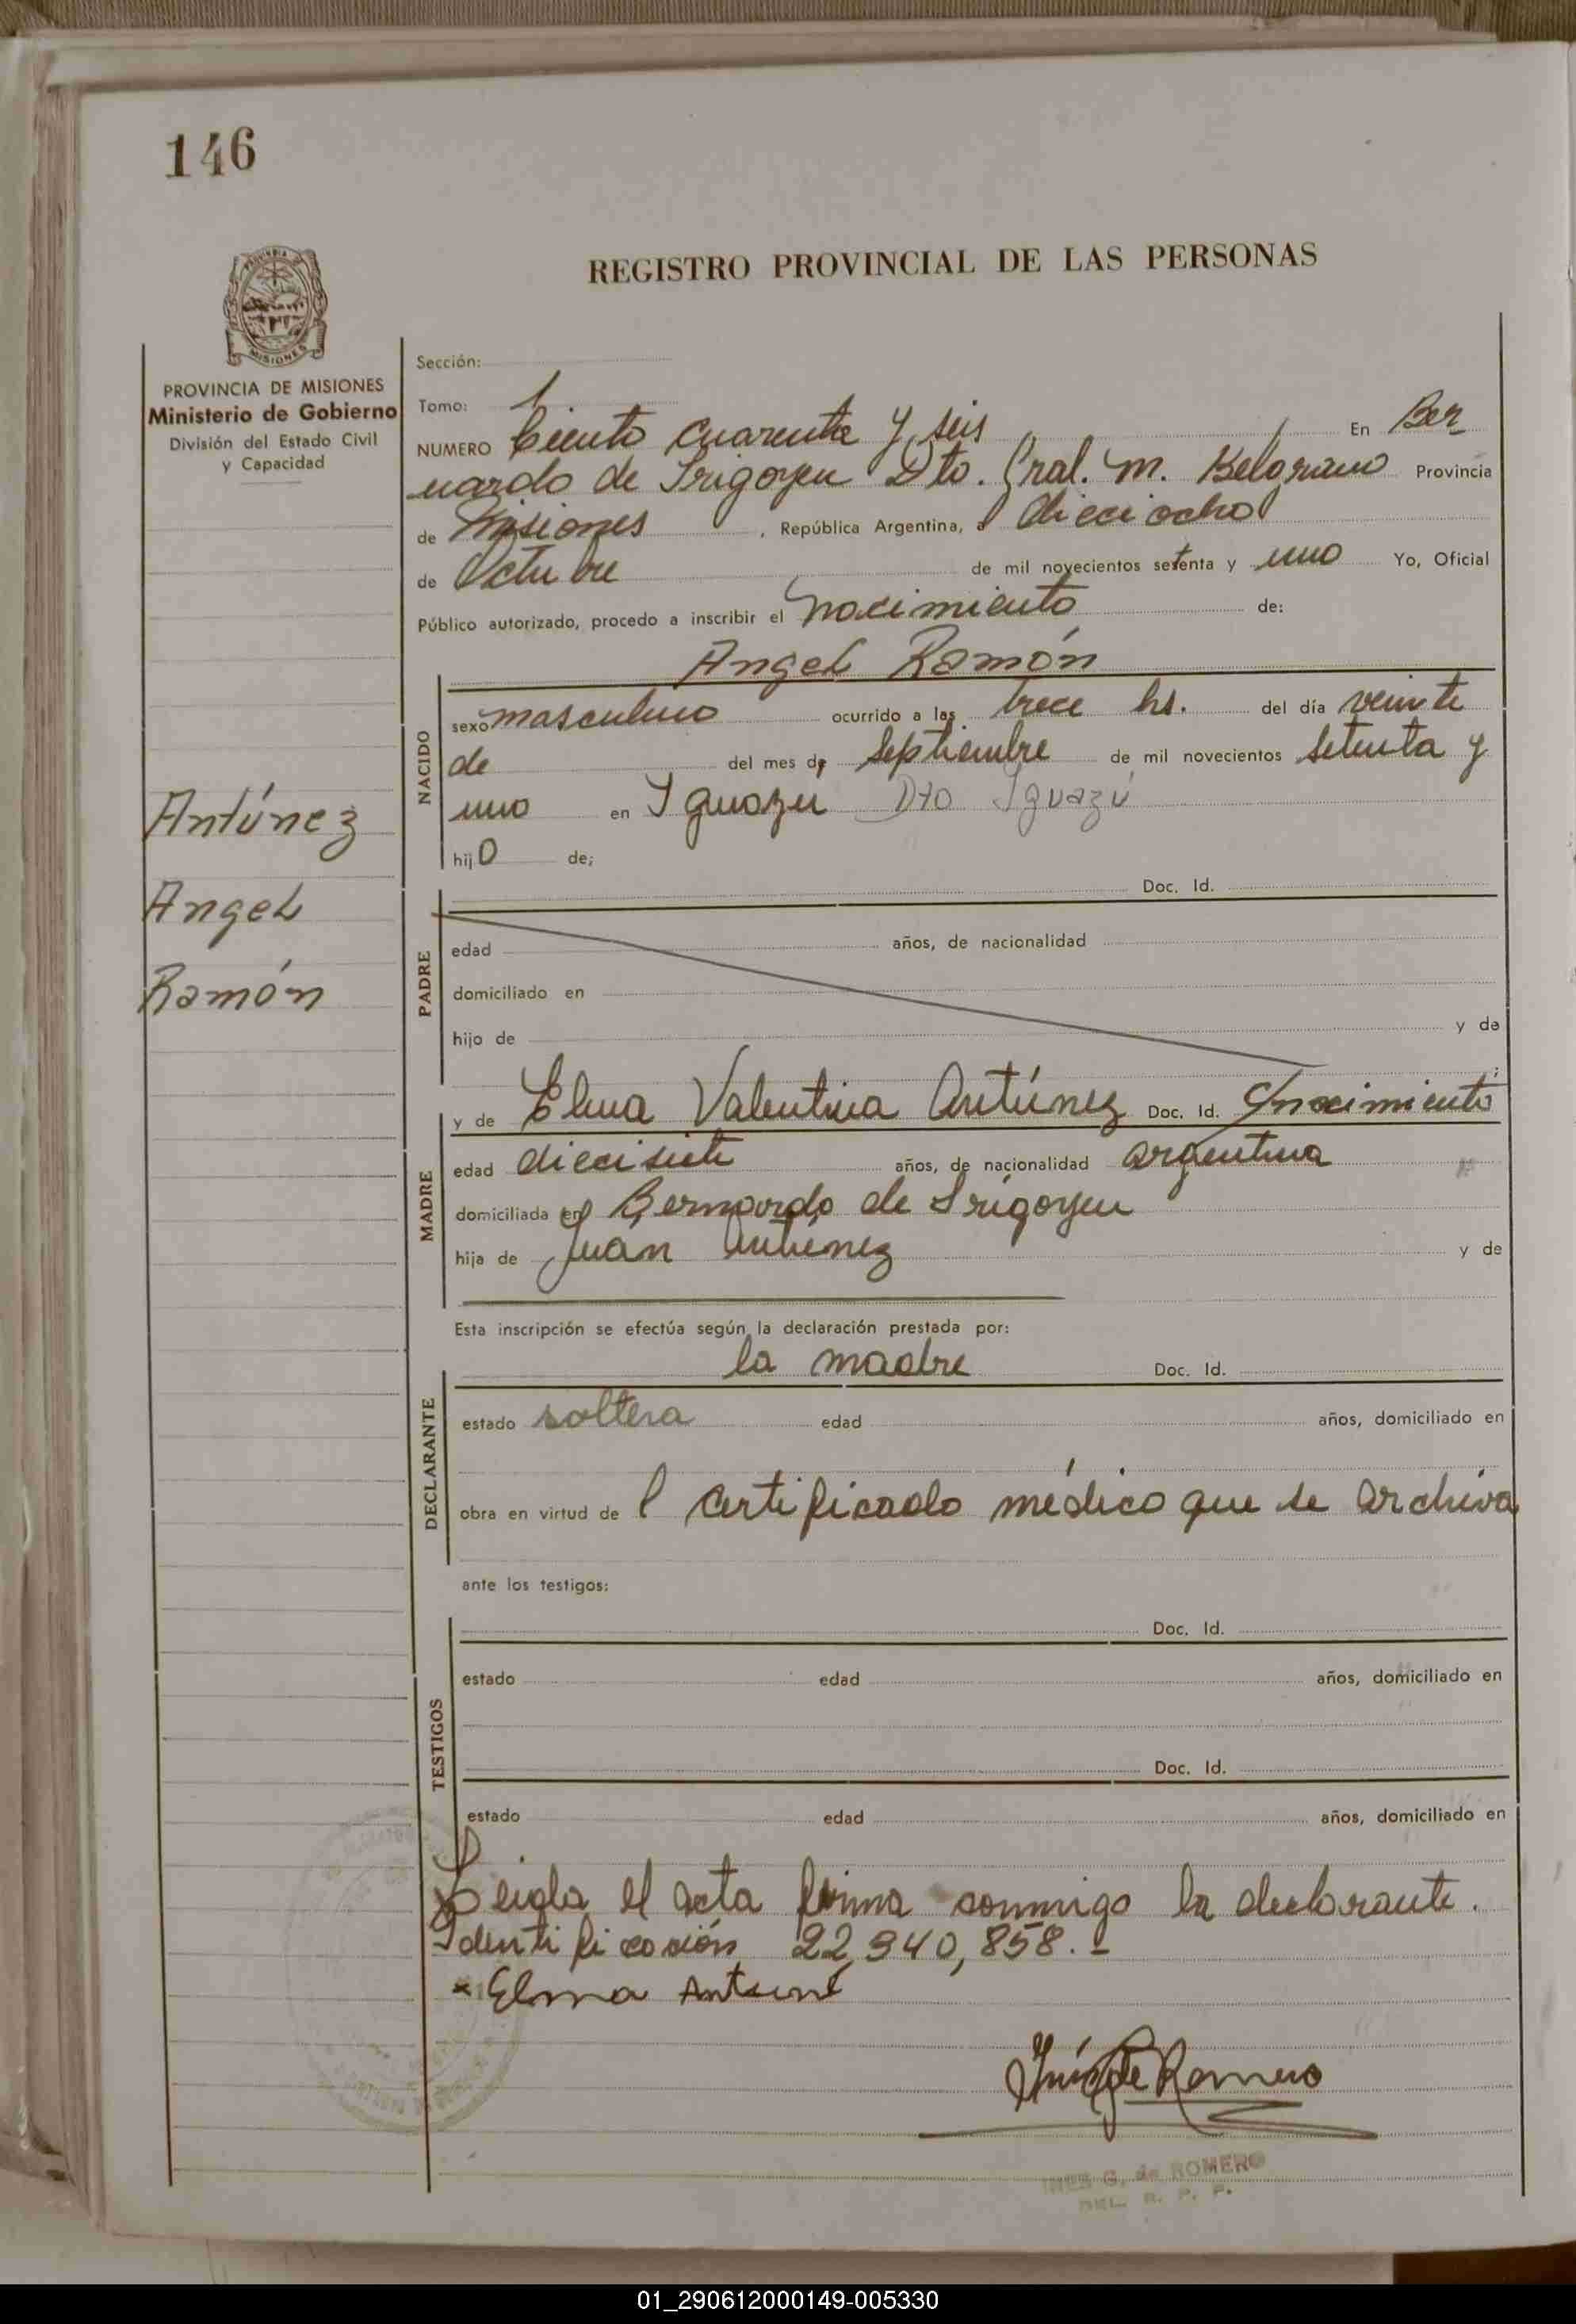 146
REGISTRO PROVINCIAL DE LAS PERSONAS
MISIONES
PROVINCIA DE MISIONES
Ministerio de Gobierno
División del Estado Civil
y Capacidad
Antúnez
Angel
Ramón
Sección:
Tomo: 1
NUMERO Ciento cuarenta y seis En Ber
nardo de Irigoyen Dto. Gral. M. Belgrano Provincia
de Misiones, República Argentina, a dieciocho
de Octubre de mil novecientos setenta y uno Yo, Oficial
Público autorizado, procedo a inscribir el nacimiento de:
Angel Ramón
NACIDO
sexo masculino ocurrido a las trece hs. del día veinte
de del mes de septiembre de mil novecientos setenta y
uno en Iguazú Dto Iguazú
hijo de;
PADRE
Doc. Id.
edad años, de nacionalidad
domiciliado en
hijo de y de
;
MADRE
y de Elma Valentina Antúnez Doc. Id. nacimiento
edad diecisiete años, de nacionalidad argentina
domiciliada en Bernardo de Irigoyen
hija de Juan Antúnez y de
Esta inscripción se efectúa según la declaración prestada por:
DECLARANTE
la madre Doc. Id.
estado soltera edad años, domiciliado en
obra en virtud de l certificado médico que se archiva
ante los testigos:
TESTIGOS
Doc. Id.
estado edad años, domiciliado en
Doc. Id.
estado edad años, domiciliado en
Leida el acta firma conmigo la declarante.
Identificación 22,340,858.-
x Elma Antune
Inés G de Romero
INES G. de ROMERO
DEL. R. P. P.
01_290612000149-005330